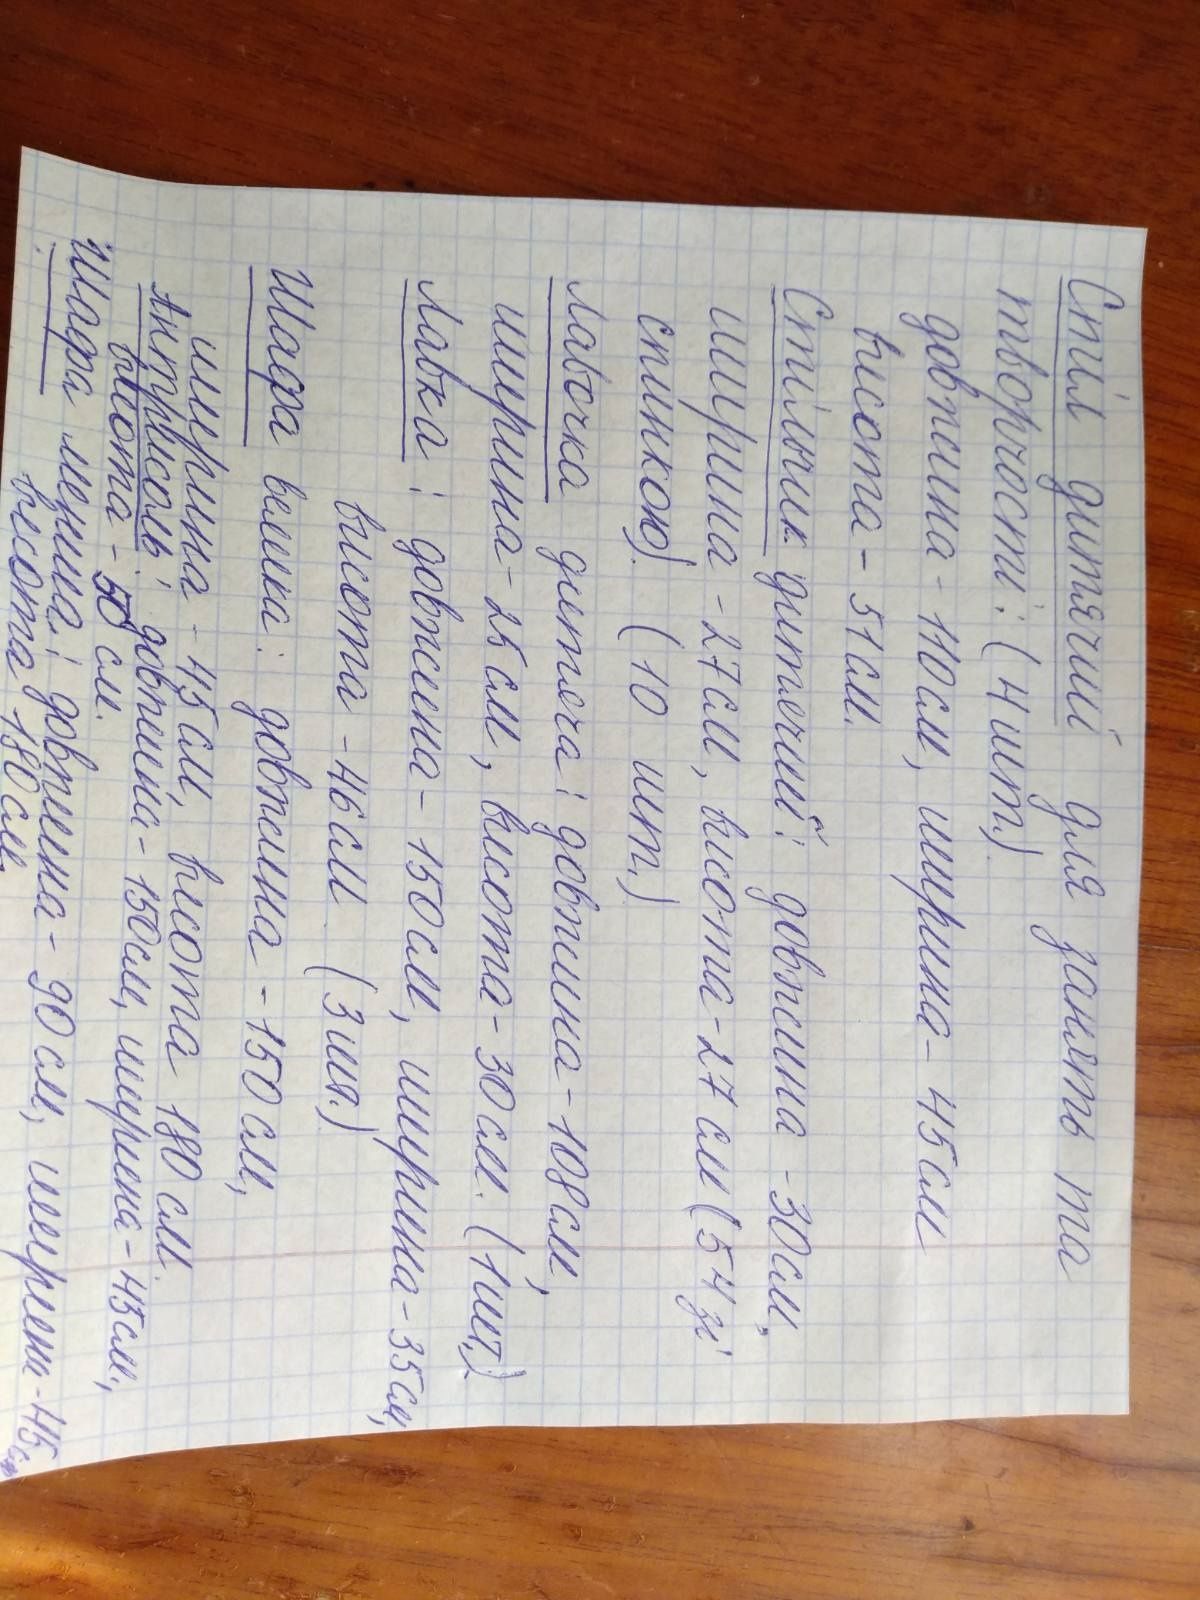 Стіл дитячий для занять та
творчості: (4 шт.)
довжина - 110см, ширина - 45см
висота - 51см.
Стільчик дитячий: довжина - 30см,
ширина - 27см, висота - 27см (54 зі
спинкою) (10 шт.)
Лавочка дитяча: довжина - 108см,
ширина - 25см, висота - 30см. (1шт.)
Лавка: довжина - 150см, ширина - 35см,
висота - 46см (3шт.)
Шафа велика: довжина - 150см,
ширина - 45см, висота 180см.
Антрисоль: довжина - 150см, ширина - 45см,
висота - 50см.
Шафа менша: довжина - 90см, ширина - 45см
висота 180см.